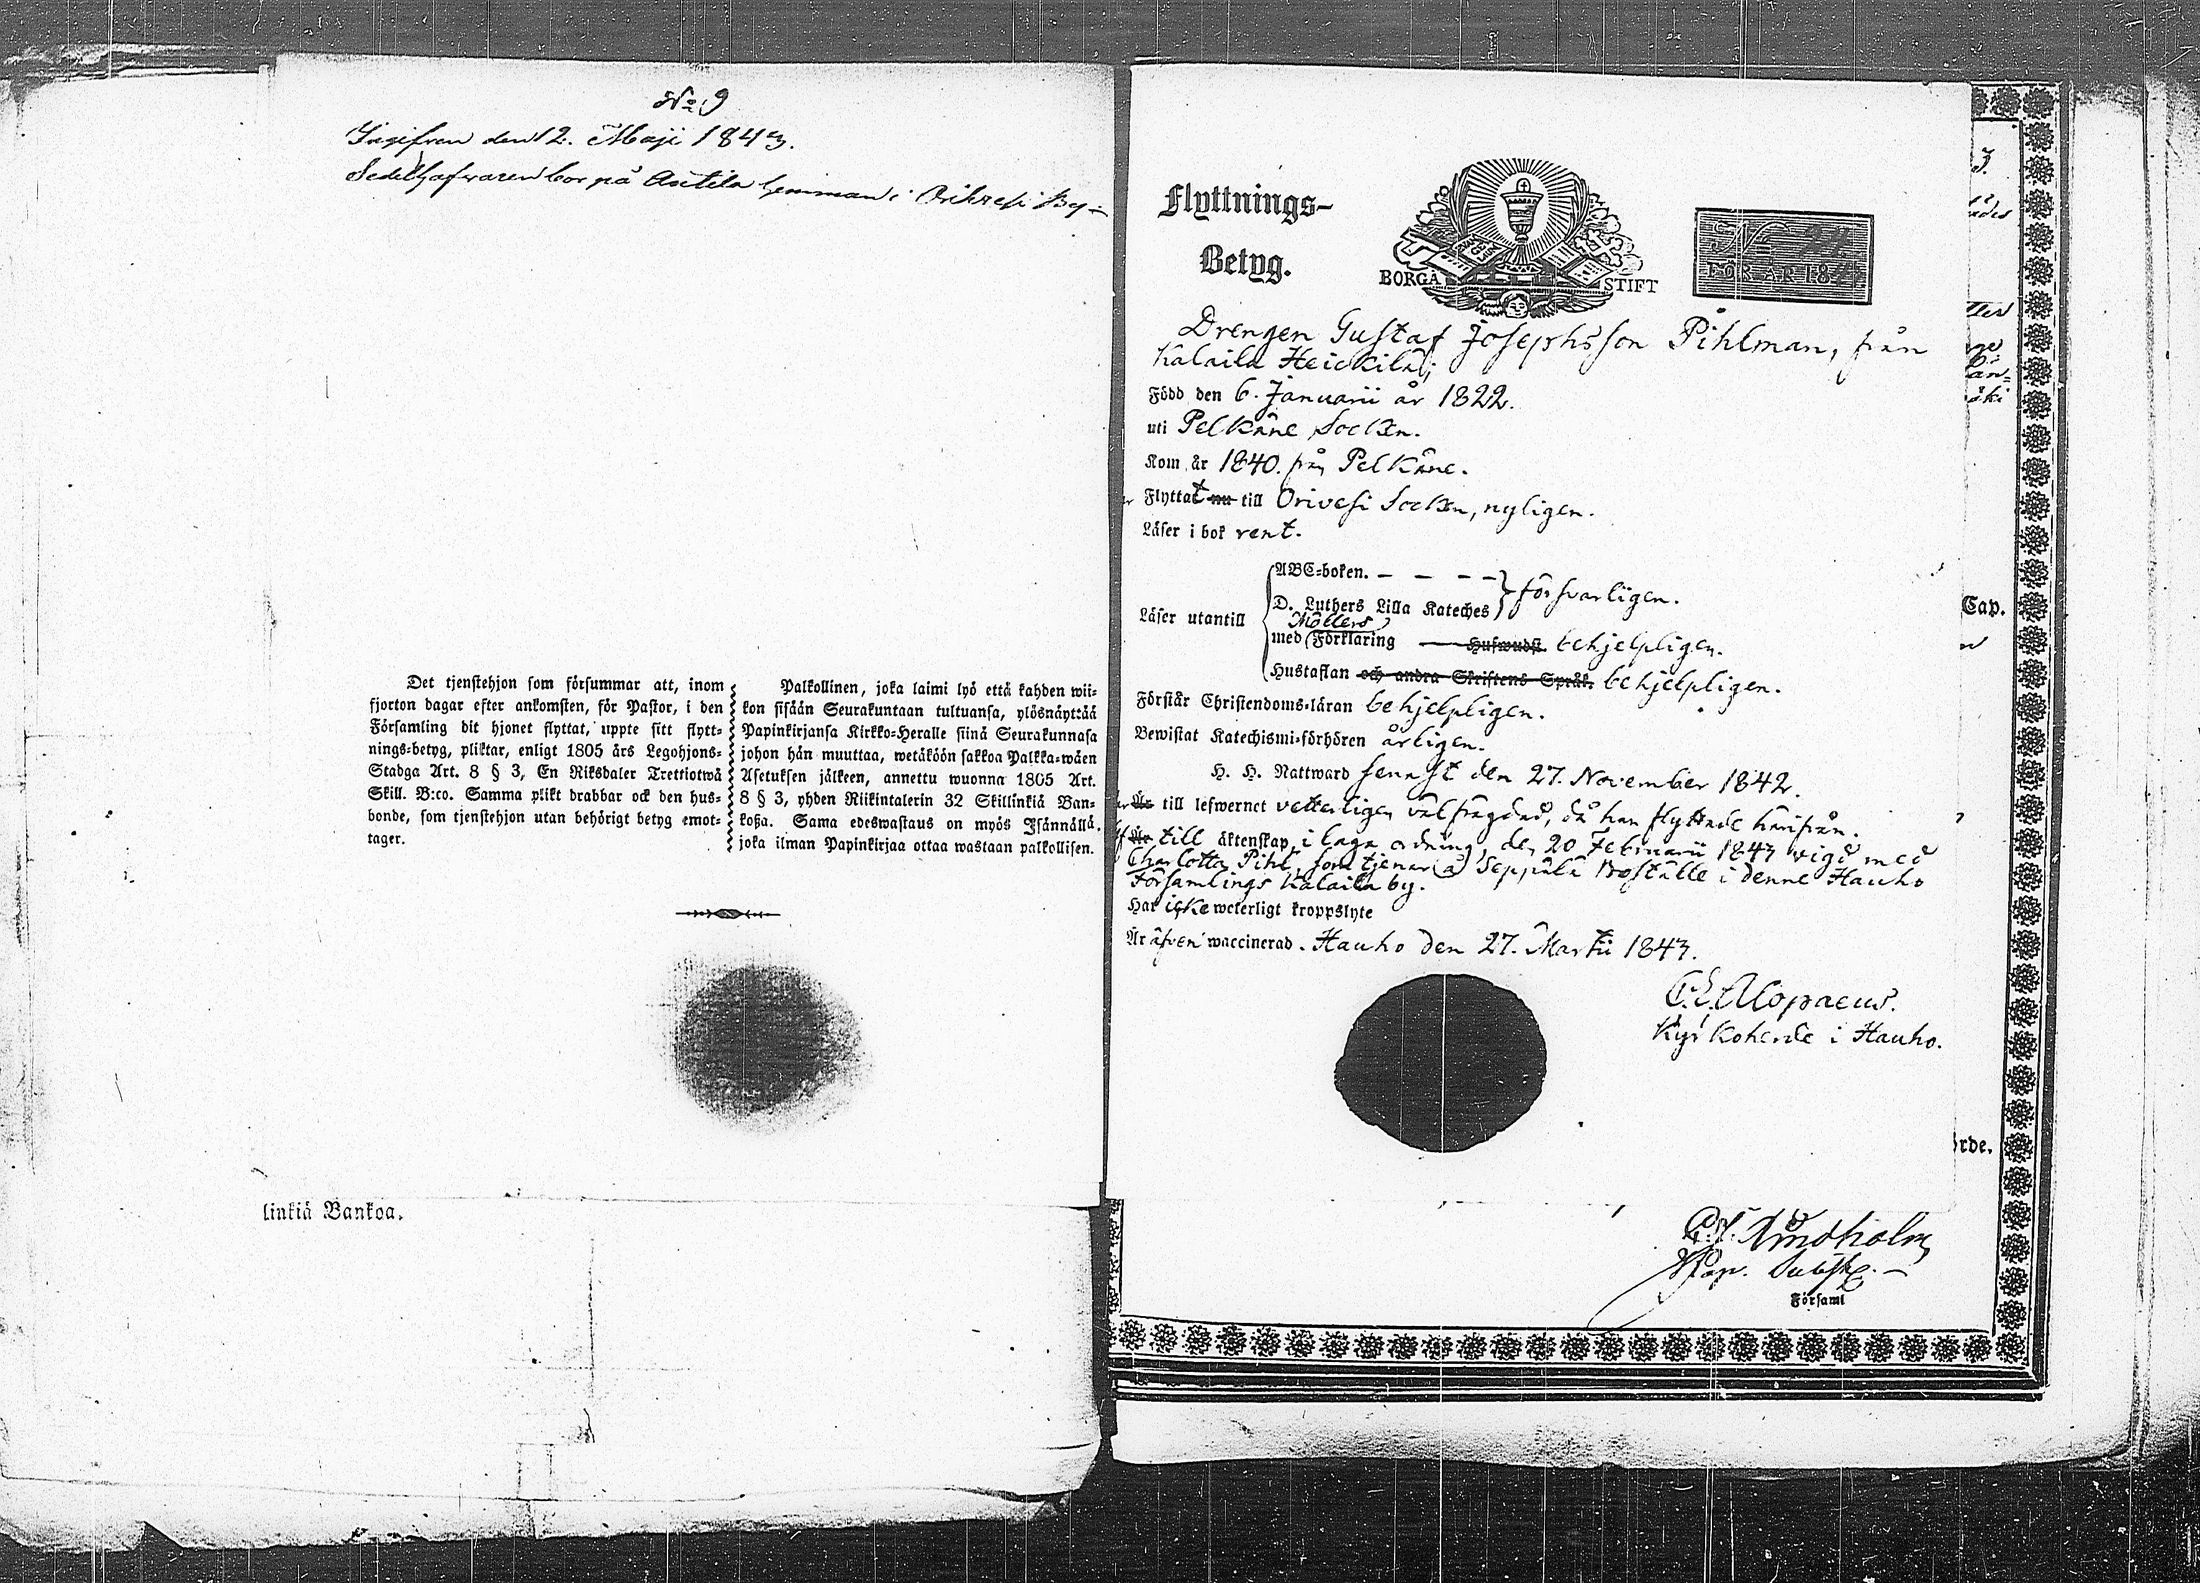 No 9
Ingifven den 12. Maji 1843.
Sedelhafvaren bor på Anttila hemman i Orihvesi By
Det tjenstehjon som försummar att, inom
fjorton dagar efter ankomsten, för Pastor, i den
Församling dit hjonet flyttat, uppte sitt flytt-
nings-betyg, pliktar, enligt 1805 års Legohjons-
Stadga Art. 8 § 3, En Riksdaler Trettiotwå
Skill. B:co. Samma plikt drabbar ock den hus-
bonde, som tjenstehjon utan behörigt betyg emot-
tager.
Palkollinen, joka laimi lyö että kahden wii-
kon sisään Seurakuntaan tultuansa, ylösnäyttää
Papinkirjansa Kirkko-Heralle siinä Seurakunnasa
johon hän muuttaa, wetäköön sakkoa Palkka-wäen
Asetuksen jälkeen, annettu wuonna 1805 Art.
8 § 3, yhden Riikintalerin 32 Skillinkiä Ban-
koßa. Sama edeswastaus on myös Isännällä,
joka ilman Papinkirjaa ottaa wastaan palkollisen.
linkiä Bankoa.
Flyttnings-
Betyg.
BORGÅ STIFT
No 22
FÖR ÅR 184
Drengen Gustaf Josephsson Pihlman, från
Kalaila Heickilä;
Född den 6. Januarii år 1822.
uti Pelkäne Socken.
Kom år 1840. från Pelkäne.
Flyttat nu till Orivesi Socken, nyligen.
Läser i bok rent.
Läser utantill
ABC-boken. – – – –
D. Luthers Lilla Kateches försvarligen.
Möllers
med Förklaring Hufwudst. behjelpligen.
Hustaflan och andra Skriftens Språk. behjelpligen.
Förstår Christendoms-läran behjelpligen.
Bewistat Katechismi-förhören årligen.
H. H. Nattward sennst den 27. November 1842.
Är till lefwernet vetterligen välfrägdad, då han flyttade härifrån.
Är till äktenskap, i laga ordning, den 20 Februarii 1843 vigd med
Charlotta Pihl, som tjenar å Seppälä Boställe i denne Hauho
Församlings Kalaila by.
Har icke weterligt kroppslyte
Är äfven waccinerad. Hauho den 27. Martii 1843.
Alopaeus.
Kyrkoherde i Hauho.
Cap.
örde.
Lindholm
Församl